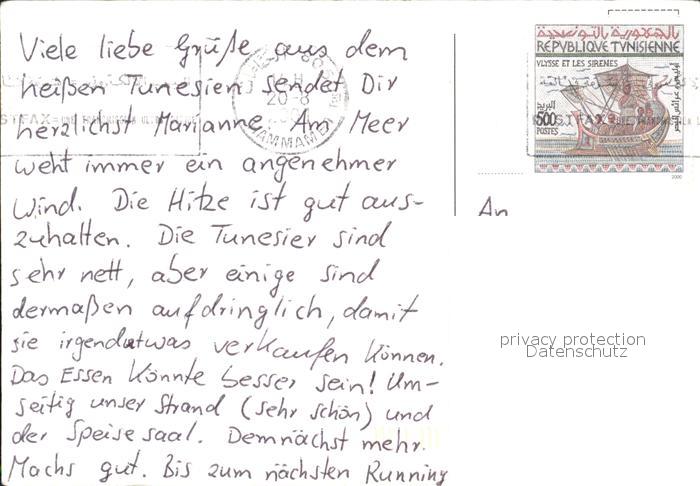 Viele liebe Grüße aus dem
heißen Tunesien sendet Dir
herzlichst Marianne. Am Meer
weht immer ein angenehmer
Wind. Die Hitze ist gut aus-
zuhalten. Die Tunesier sind
sehr nett, aber einige sind
dermaßen aufdringlich, damit
sie irgendetwas verkaufen können.
Das Essen könnte besser sein! Um-
seitig unser Strand (sehr schön) und
der Speisesaal. Demnächst mehr.
Machs gut. Bis zum nächsten Running
20-8
HAMMAMET
الجمهورية التونسية
REPUBLIQUE TUNISIENNE
ULYSSE ET LES SIRENES
البريد
500
POSTES
2000
An
privacy protection
Datenschutz